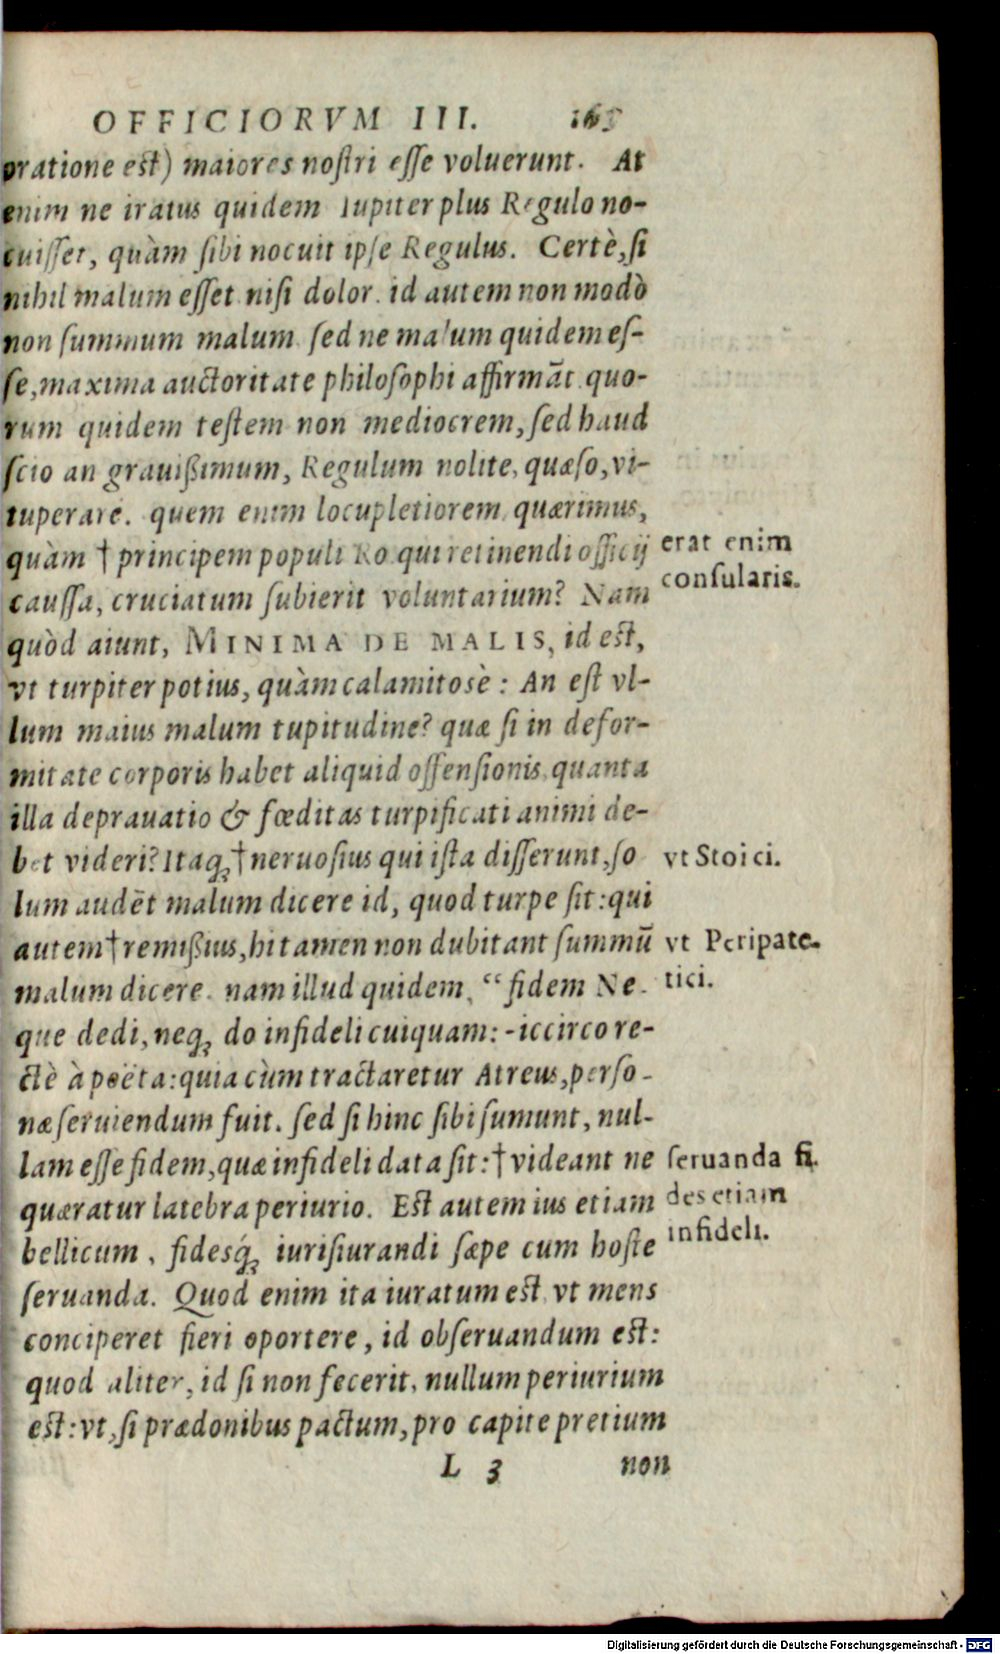 OFFICIORVM III. 165
oratione est) maiores nostri esse voluerunt. At
enim ne iratus quidem Iupiter plus Regulo no-
cuisset, quàm sibi nocuit ipse Regulus. Certè, si
nihil malum esset nisi dolor. id autem non modò
non summum malum sed ne malum quidem es-
se, maxima auctoritate philosophi affirmāt. quo-
rum quidem testem non mediocrem, sed haud
scio an grauißimum, Regulum nolite, quæso, vi-
tuperare. quem enim locupletiorem quærimus,
quàm † principem populi Ro. qui retinendi officij
caussa, cruciatum subierit voluntarium? Nam
quòd aiunt, MINIMA DE MALIS, id est,
vt turpiter potius, quàm calamitosè: An est vl-
lum maius malum tupitudine? quæ si in defor-
mitate corporis habet aliquid offensionis, quanta
illa deprauatio & fœditas turpificati animi de-
bet videri? Itaq; † neruosius qui ista disserunt, so
lum audēt malum dicere id, quod turpe sit: qui
autem † remißius, hi tamen non dubitant summū
malum dicere. nam illud quidem, “fidem Ne-
que dedi, neq; do infideli cuiquam: -iccirco re-
ctè à poëta: quia cùm tractaretur Atreus, perso-
næ seruiendum fuit. sed si hinc sibi sumunt, nul-
lam esse fidem, quæ infideli data sit: † videant ne
quæratur latebra periurio. Est autem ius etiam
bellicum, fidesq́; iurisiurandi sæpe cum hoste
seruanda. Quod enim ita iuratum est, vt mens
conciperet fieri oportere, id obseruandum est:
quod aliter, id si non fecerit, nullum periurium
est: vt, si prædonibus pactum, pro capite pretium
L 3 non
erat enim
consularis.
vt Stoici.
vt Peripate-
tici.
seruanda fi-
des etiam
infideli.
Digitalisierung gefördert durch die Deutsche Forschungsgemeinschaft - DFG